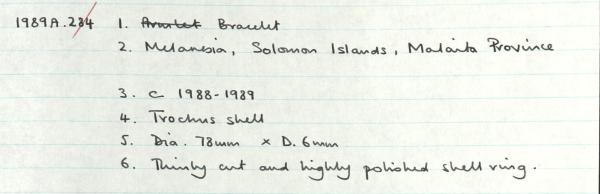 1989A.234 1. Armlet Bracelet
2. Melanesia, Solomon Islands, Malaita Province
3. c 1988-1989
4. Trochus shell
5. Dia. 78mm × D. 6mm
6. Thinly cut and highly polished shell ring.